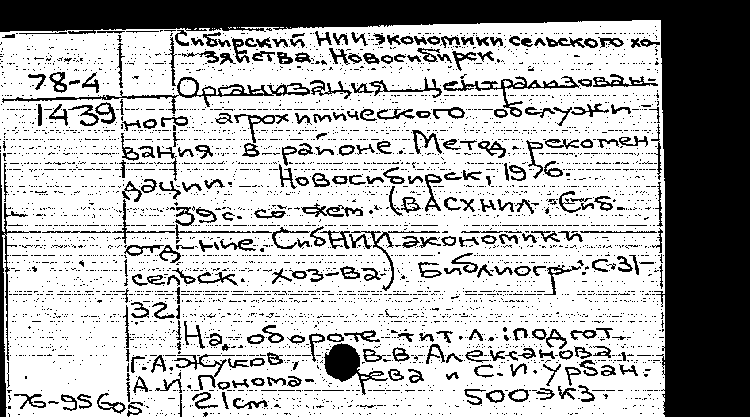 Сибирский НИИ экономики сельского хо-
зяйства. Новосибирск.
78-4
1439
Организация централизован-
ного агрохимического обслужи-
вания в районе. Метод. рекомен-
дации. Новосибирск, 1976.
39 с. со схем. (ВАСХНИЛ. Сиб.
отд-ние. СибНИИ экономики
сельск. хоз-ва). Библиогр.: с. 31-
32.
На обороте тит. л.: подгот.
Г.А. Жуков, В.В. Алексанова,
А.И. Понома-рева и С.И. Урбан.
21 см. 500 экз.